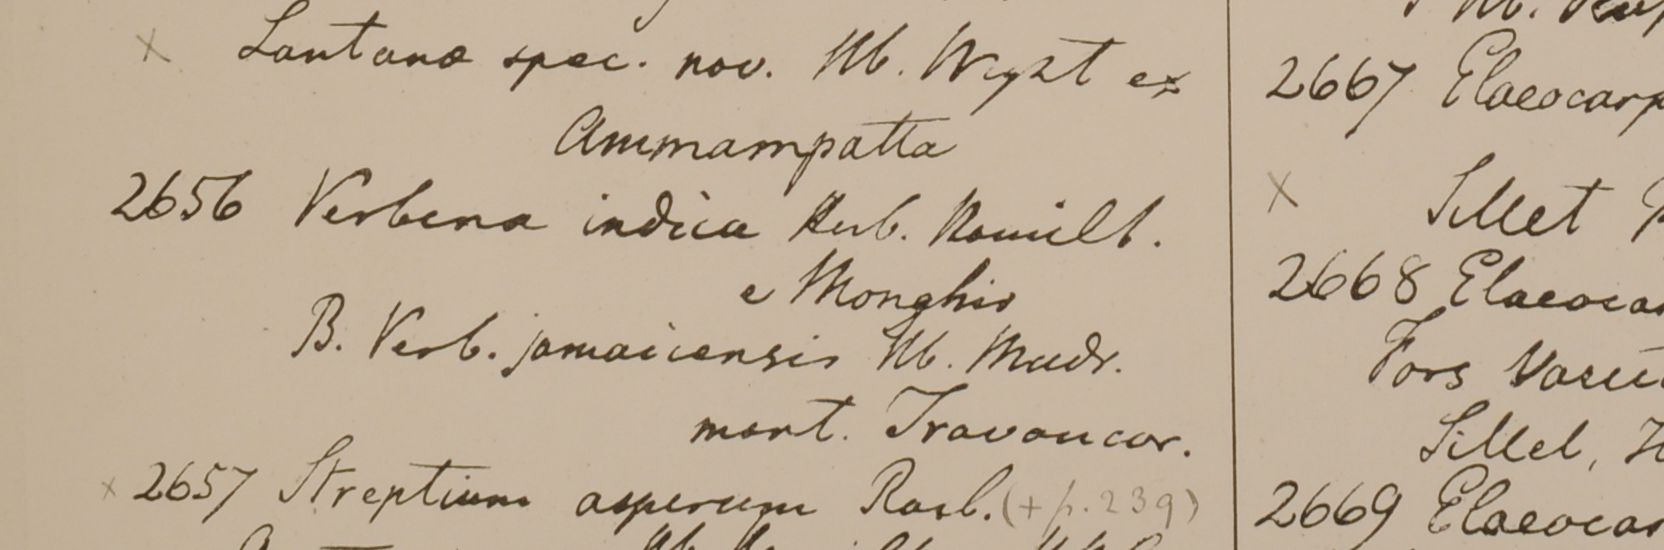 × Lantana spec. nov. Hb. Wight ex
Ammampatta
2656 Verbena indica Herb. Hamilt.
e Monghir
B. Verb. jamaicensis Hb. Madr.
mont. Travancor.
× 2657 Streptium asperum Roxb. (+ p. 239)
Hb.
2667 Elaeocarp
× Sillet
2668 Elaeocar
Fors
Sillet, H
2669 Elaeocar